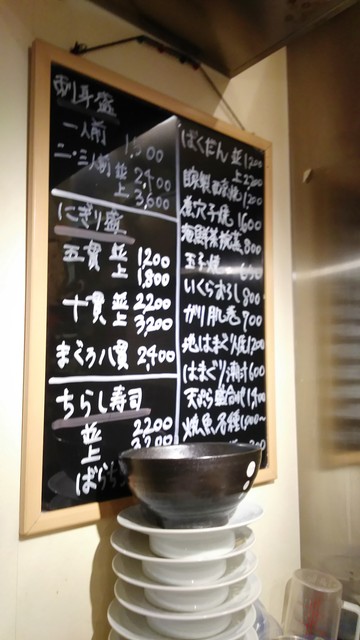 刺身盛
一人前 1,500
二・三人前 並 2,400
上 3,600
にぎり盛
五貫 並 1200
上 1,800
十貫 並 2200
上 3,200
まぐろ八貫 2,400
ちらし寿司
並 2200
上
ばらち
ばくだん 並 1200
上 2200
自家製西京焼 1200
煮穴子焼 1600
海鮮茶碗蒸 800
玉子焼 600
いくらおろし 800
ガリ肌巻 700
地はまぐり焼 1200
はまぐり潮汁 600
天ぷら盛合わせ 1400
焼魚各種 1000〜